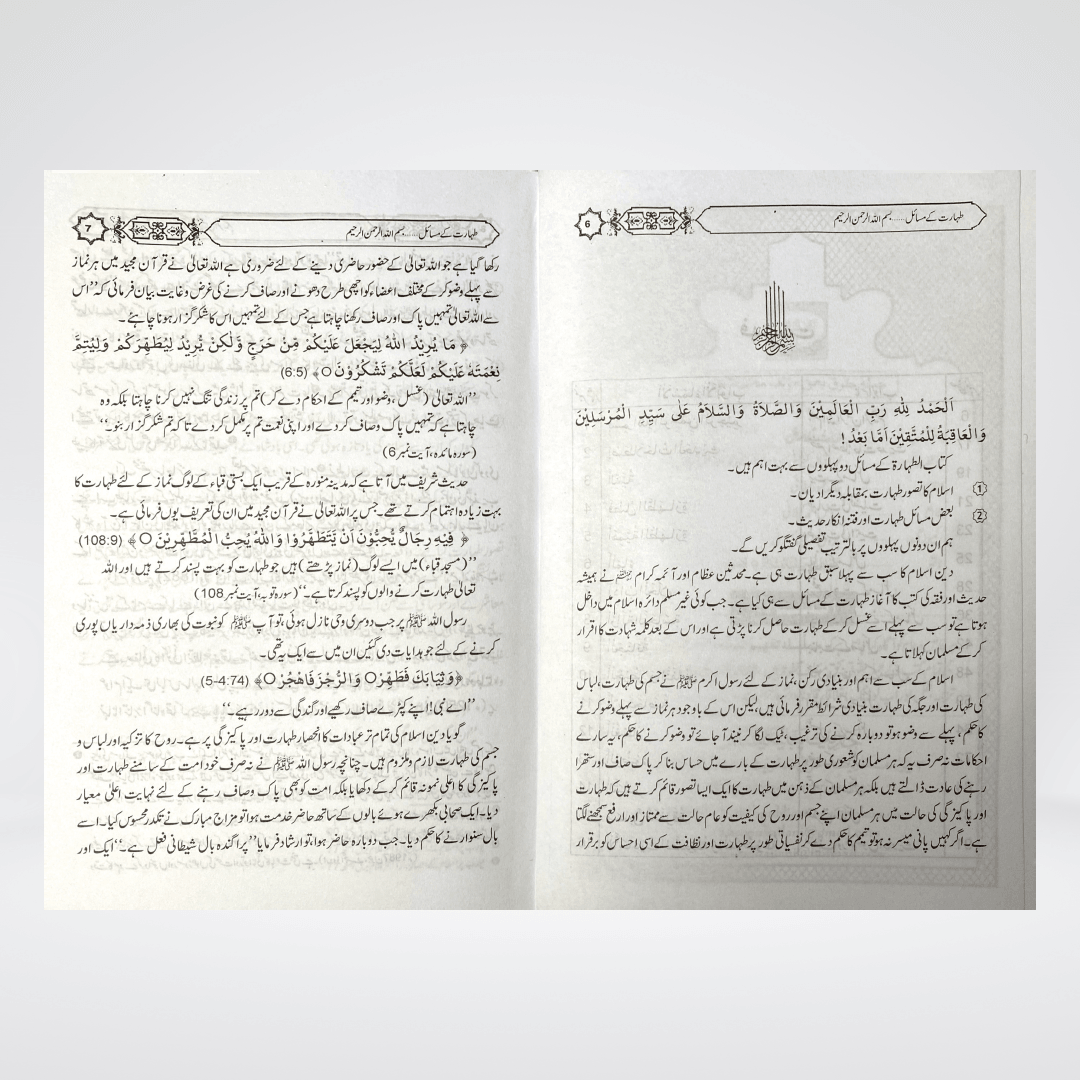 طہارت کے مسائل ...... بسم اللہ الرحمن الرحیم
6
اَلْحَمْدُ لِلّٰهِ رَبِّ الْعَالَمِيْنَ وَالصَّلَاةُ وَالسَّلَامُ عَلٰى سَيِّدِ الْمُرْسَلِيْنَ
وَالْعَاقِبَةُ لِلْمُتَّقِيْنَ اَمَّا بَعْدُ !
کتاب الطہارۃ کے مسائل دو پہلووں سے بہت اہم ہیں۔
① اسلام کا تصور طہارت بمقابلہ دیگر ادیان۔
② بعض مسائل طہارت اور فتنہ انکار حدیث۔
ہم ان دونوں پہلووں پر بالترتیب تفصیلی گفتگو کریں گے۔
دین اسلام کا سب سے پہلا سبق طہارت ہی ہے۔ محدثین عظام اور آئمہ کرام نے ہمیشہ
حدیث اور فقہ کی کتب کا آغاز طہارت کے مسائل سے ہی کیا ہے۔ جب کوئی غیر مسلم دائرہ اسلام میں داخل
ہوتا ہے تو سب سے پہلے اسے غسل کر کے طہارت حاصل کرنا پڑتی ہے اور اس کے بعد کلمہ شہادت کا اقرار
کر کے مسلمان کہلاتا ہے۔
اسلام کے سب سے اہم اور بنیادی رکن، نماز کے لئے رسول اکرم ﷺ نے جسم کی طہارت، لباس
کی طہارت اور جگہ کی طہارت بنیادی شرائط مقرر فرمائی ہیں، لیکن اس کے باوجود ہر نماز سے پہلے وضو کرنے
کا حکم، پہلے سے وضو ہو تو دوبارہ کرنے کی ترغیب، ٹیک لگا کر نیند آ جائے تو وضو کرنے کا حکم، یہ سارے
احکامات نہ صرف یہ کہ ہر مسلمان کو شعوری طور پر طہارت کے بارے میں حساس بنا کر پاک صاف اور ستھرا
رہنے کی عادت ڈالتے ہیں بلکہ ہر مسلمان کے ذہن میں طہارت کا ایک ایسا تصور قائم کرتے ہیں کہ طہارت
اور پاکیزگی کی حالت میں ہر مسلمان اپنے جسم اور روح کی کیفیت کو عام حالت سے ممتاز اور ارفع سمجھنے لگتا
ہے۔ اگر کہیں پانی میسر نہ ہو تو تیمم کا حکم دے کر نفسیاتی طور پر طہارت اور نظافت کے اسی احساس کو برقرار
طہارت کے مسائل ...... بسم اللہ الرحمن الرحیم
7
رکھا گیا ہے جو اللہ تعالیٰ کے حضور حاضری دینے کے لئے ضروری ہے اللہ تعالیٰ نے قرآن مجید میں ہر نماز
سے پہلے وضو کر کے مختلف اعضاء کو اچھی طرح دھونے اور صاف کرنے کی غرض و غایت بیان فرمائی کہ ’’اس
سے اللہ تعالیٰ تمہیں پاک اور صاف رکھنا چاہتا ہے جس کے لئے تمہیں اس کا شکر گزار ہونا چاہئے۔
﴿ مَا يُرِيْدُ اللّٰهُ لِيَجْعَلَ عَلَيْكُمْ مِّنْ حَرَجٍ وَّلٰكِنْ يُّرِيْدُ لِيُطَهِّرَكُمْ وَلِيُتِمَّ
نِعْمَتَهٗ عَلَيْكُمْ لَعَلَّكُمْ تَشْكُرُوْنَ ○﴾ (6:5)
’’اللہ تعالیٰ (غسل، وضو اور تیمم کے احکام دے کر) تم پر زندگی تنگ نہیں کرنا چاہتا بلکہ وہ
چاہتا ہے کہ تمہیں پاک و صاف کر دے اور اپنی نعمت تم پر مکمل کر دے تا کہ تم شکر گزار بنو۔‘‘
(سورہ مائدہ، آیت نمبر 6)
حدیث شریف میں آتا ہے کہ مدینہ منورہ کے قریب ایک بستی قباء کے لوگ نماز کے لئے طہارت کا
بہت زیادہ اہتمام کرتے تھے۔ جس پر اللہ تعالیٰ نے قرآن مجید میں ان کی تعریف یوں فرمائی ہے۔
﴿ فِيْهِ رِجَالٌ يُّحِبُّوْنَ اَنْ يَّتَطَهَّرُوْا وَاللّٰهُ يُحِبُّ الْمُطَّهِّرِيْنَ ○﴾ (108:9)
’’(مسجد قباء) میں ایسے لوگ (نماز پڑھتے) ہیں جو طہارت کو بہت پسند کرتے ہیں اور اللہ
تعالیٰ طہارت کرنے والوں کو پسند کرتا ہے۔‘‘ (سورہ توبہ، آیت نمبر 108)
رسول اللہ ﷺ پر جب دوسری وحی نازل ہوئی، تو آپ ﷺ کو نبوت کی بھاری ذمہ داریاں پوری
کرنے کے لئے جو ہدایات دی گئیں ان میں سے ایک یہ تھی۔
﴿وَثِيَابَكَ فَطَهِّرْ ○ وَالرُّجْزَ فَاهْجُرْ ○﴾ (5-4:74)
’’اے نبی! اپنے کپڑے صاف رکھیے اور گندگی سے دور رہیے۔‘‘
گویا دین اسلام کی تمام تر عبادات کا انحصار طہارت اور پاکیزگی پر ہے۔ روح کا تزکیہ اور لباس و
جسم کی طہارت لازم و ملزوم ہیں۔ چنانچہ رسول اللہ ﷺ نے نہ صرف خود امت کے سامنے طہارت اور
پاکیزگی کا اعلیٰ نمونہ قائم کر کے دکھایا بلکہ امت کو بھی پاک و صاف رہنے کے لئے نہایت اعلیٰ معیار
دیا۔ ایک صحابی بکھرے ہوئے بالوں کے ساتھ حاضر خدمت ہوا تو مزاج مبارک نے تکدر محسوس کیا۔ اسے
بال سنوارنے کا حکم دیا۔ جب دوبارہ حاضر ہوا، تو ارشاد فرمایا ’’پراگندہ بال شیطانی فعل ہے۔‘‘ ایک اور